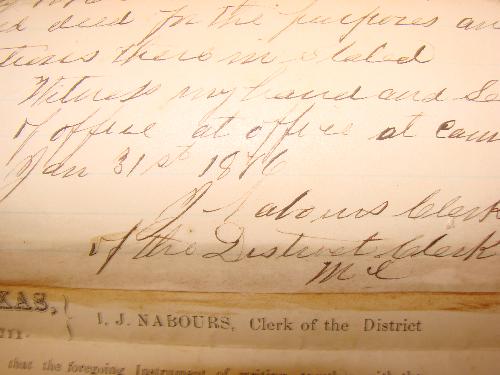 ed deed for the purposes an
tions therein stated
Witness my hand and Se
of office at office at Cam
Jan 31st 1876
J Nabours Clerk
of the District Clerk
M C
XAS,
I. J. NABOURS, Clerk of the District
that the foregoing Instrument of writing